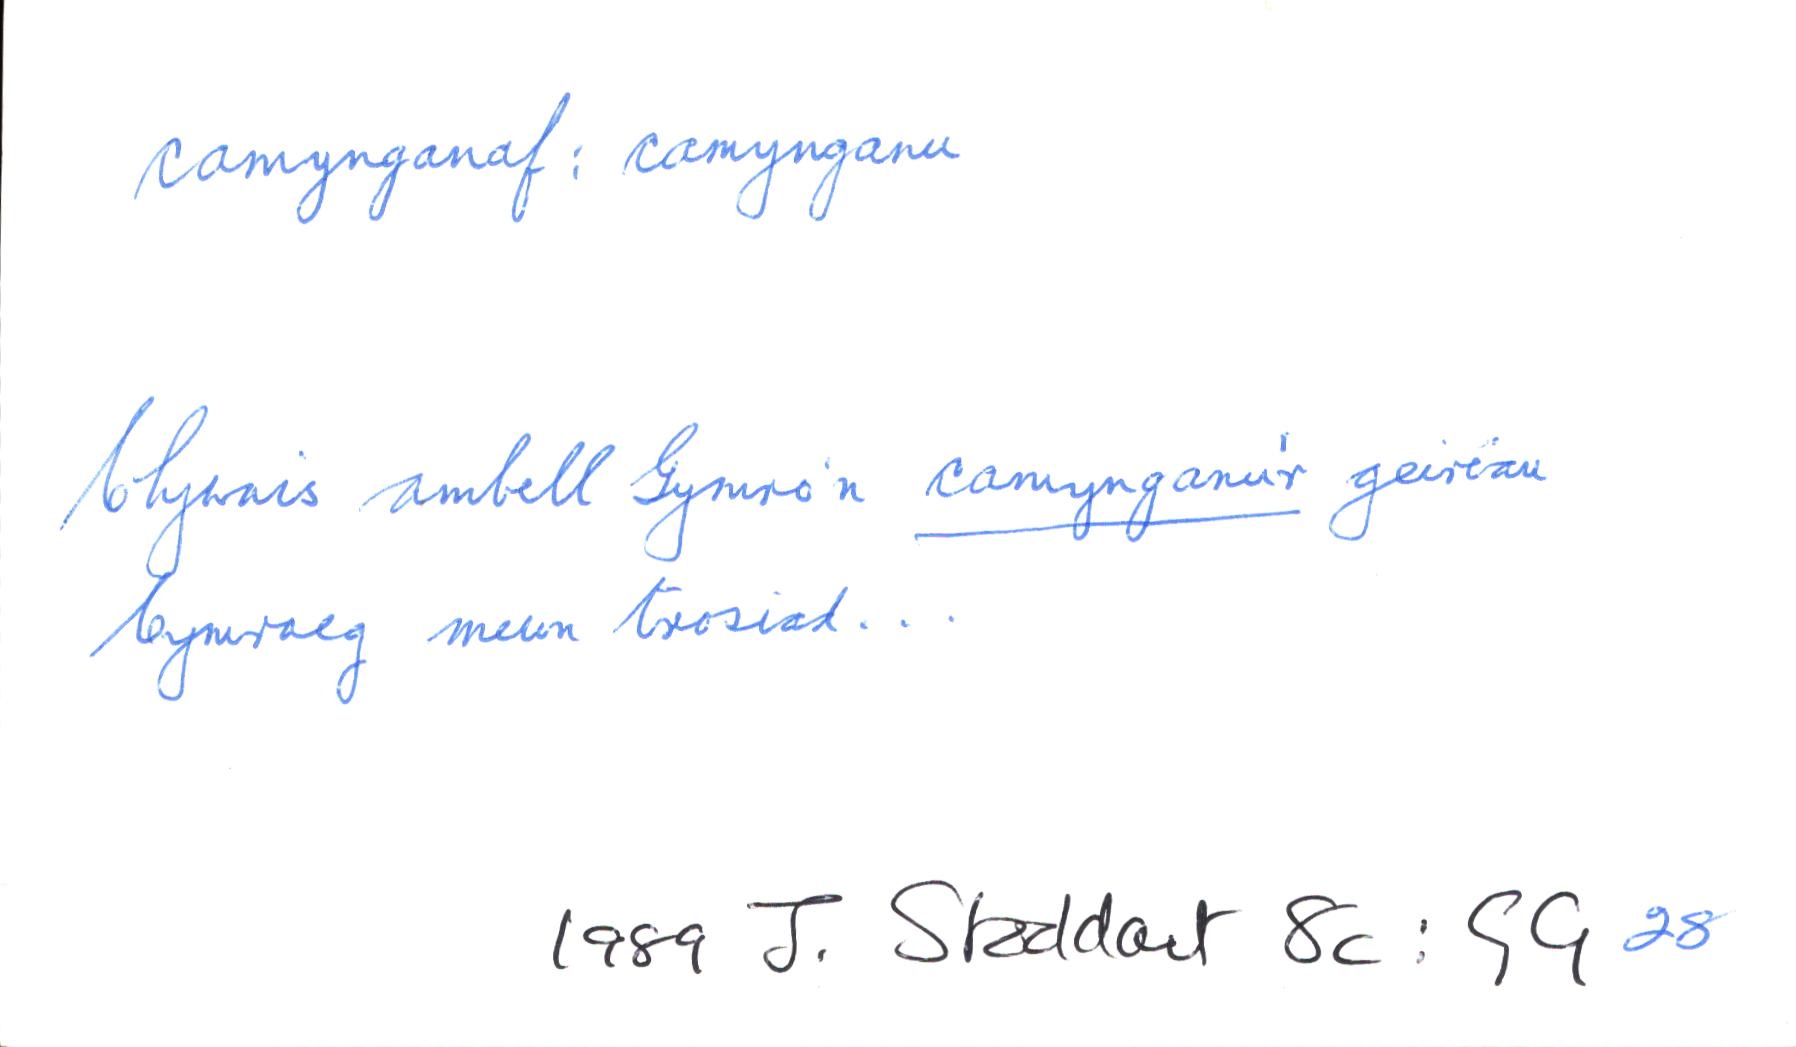 camynganaf: camynganu
Clywais ambell Gymro'n camynganu'r geiriau
Cymraeg mewn trosiad...
1989 J. Stoddart &c: GG 28